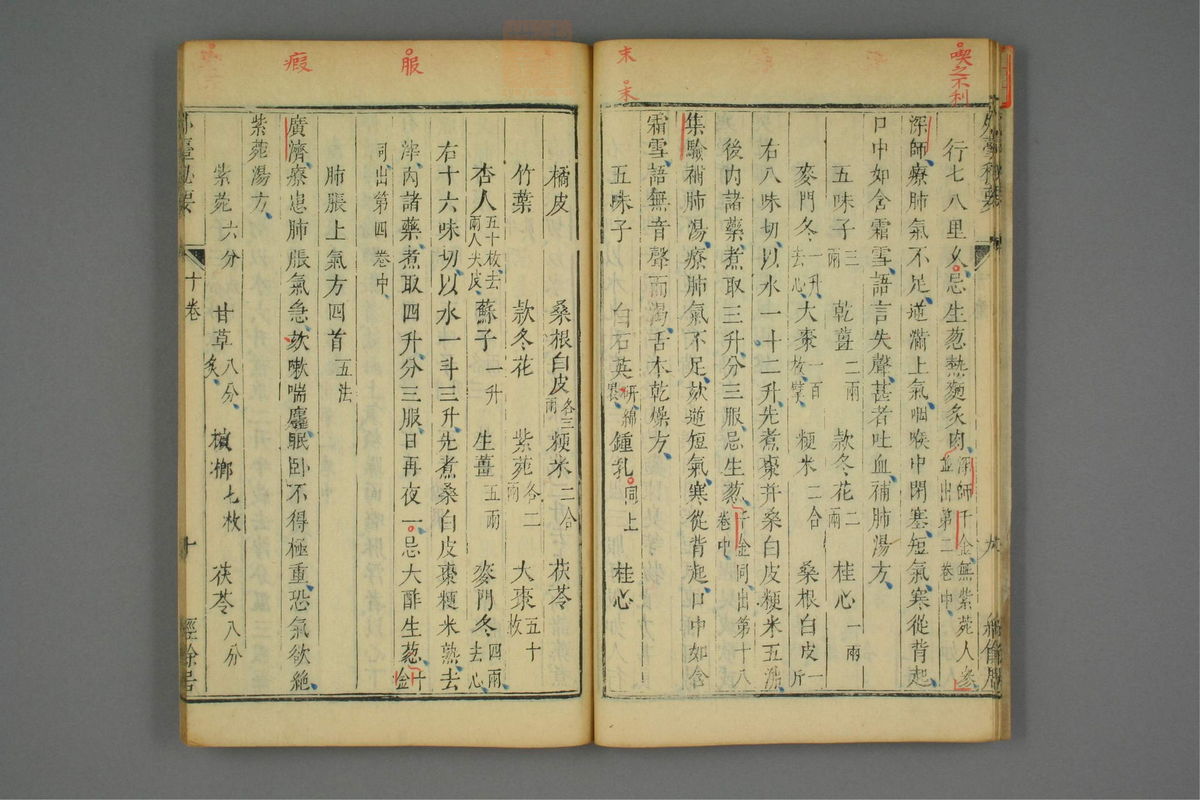 喫之不利
末
末
行七八里久忌生葱熱麪炙肉深師千金無紫菀人參並出第二卷中
深師療肺氣不足逆滿上氣咽喉中閉塞短氣寒從背起
口中如含霜雪語言失聲甚者吐血補肺湯方
五味子三兩 乾薑二兩 款冬花二兩 桂心一兩
麥門冬一升去心 大棗一百枚擘 粳米二合 桑根白皮一斤
右八味切以水一十二升先煮棗并桑白皮粳米五沸
後內諸藥煮取三升分三服忌生葱千金同出第十八卷中
集驗補肺湯療肺氣不足欬逆短氣寒從背起口中如含
霜雪語無音聲而渴舌本乾燥方
五味子 白石英研綿裹 鍾乳同上 桂心
服
瘕
橘皮 桑根白皮各三兩 粳米二合 茯苓
竹葉 款冬花 紫菀各二兩 大棗五十枚
杏人五十枚去兩人尖皮 蘇子一升 生薑五兩 麥門冬四兩去心
右十六味切以水一斗三升先煮桑白皮棗粳米熟去
滓內諸藥煮取四升分三服日再夜一忌大酢生葱千金
同出第四卷中
肺脹上氣方四首五法
廣濟療患肺脹氣急欬嗽喘麤眠卧不得極重恐氣欲絕
紫菀湯方
紫菀六分 甘草八分炙 檳榔七枚 茯苓八分
外臺秘要 十卷 十 經餘居